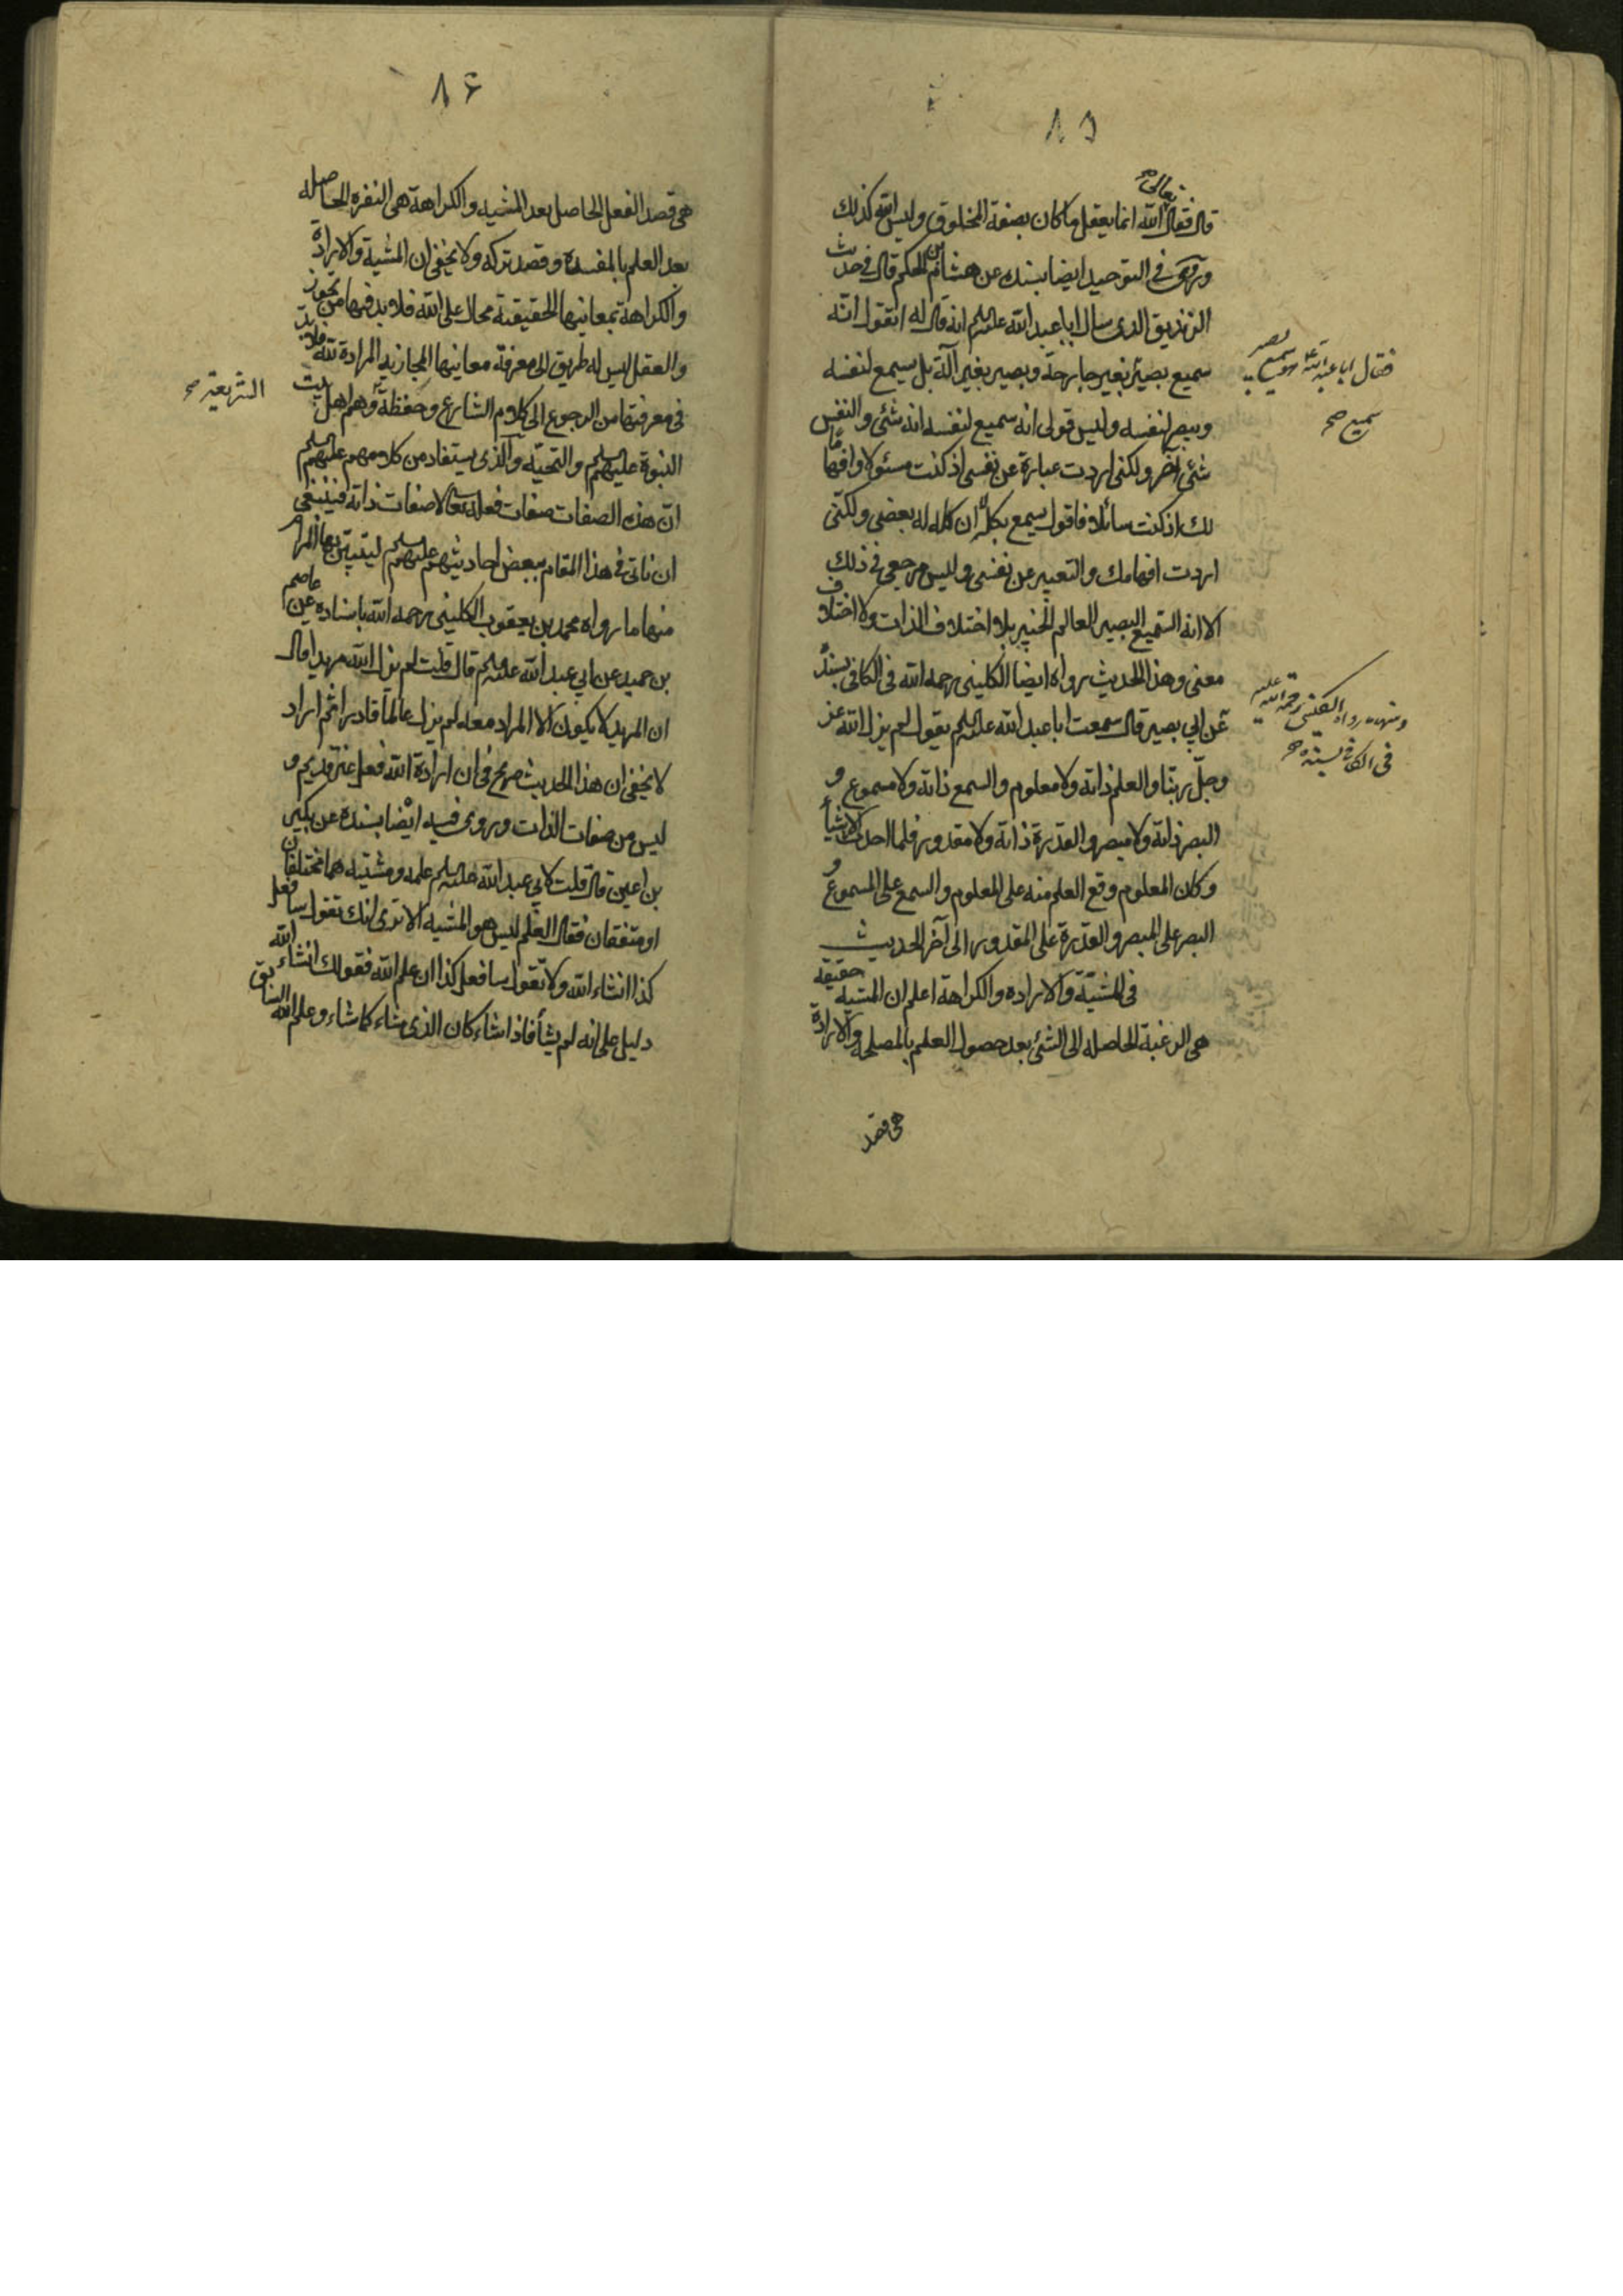 ١٥
قال فقال تعالى الله انما يعقل ما كان بصفة المخلوق وليس الله كذلك
وروى في التوحيد ايضا بسنده عن هشام بن الحكم قال في حديث
الزنديق الذى سال ابا عبد الله عليه السلم انه قال له اتقول انه
سميع بصير بغير جارحة وبصير بغير آلة بل يسمع لنفسه
فقال ابا عبد الله هو سميع بصير
سميع صح
ويبصر لنفسه وليس قولى انه سميع لنفسه انه شئ والنفس
شئ آخر ولكنى اردت عبارة عن نفسى اذ كنت مسئولا وافهاما
لك اذ كنت سائلا فاقول يسمع بكله لا ان كله له بعض ولكنى
اردت افهامك والتعبير عن نفسى وليس مرجعى فى ذلك
الا انه السميع البصير العالم الخبير بلا اختلاف الذات ولا اختلاف
معنى وهذا الحديث رواه ايضا الكلينى رحمه الله فى الكافى بسنده
ومنها ما رواه الكلينى رحمة الله عليه
فى الكافى بسنده صح
عن ابي بصير قال سمعت ابا عبد الله عليه السلم يقول لم يزل الله عز
وجل ربنا والعلم ذاته ولا معلوم والسمع ذاته ولا مسموع و
البصر ذاته ولا مبصر والقدرة ذاته ولا مقدور فلما احدث الاشيأ
وكان المعلوم وقع العلم منه على المعلوم والسمع على المسموع و
البصر على المبصر والقدرة على المقدور الى آخر الحديث
فى المشيّة والاراده والكراهة اعلم ان المشيه حقيقه
هى الرغبة الحاصله الى الشئ بعد حصول العلم بالمصلحه والارادة
هى قصد
١٦
هى قصد الفعل الحاصل بعد المشيه والكراهة هى النفره الحاصله
بعد العلم بالمفسدة وقصد تركه ولا يخفى ان المشية والارادة
والكراهة بمعانيها الحقيقية محال على الله فلا بد فيها من تجوز
والعقل ليس له طريق الى معرفة معانيها المجازيه المرادة لله فلا بد
فى معرفتها من الرجوع الى كلام الشارع وحفظة وهم اهل بيت
الشريعة صح
النبوة عليهم السلم والتحيّه والذى يستفاد من كلامهم عليهم السلم
انّ هذه الصفات صفات فعله تعالى لا صفات ذاته فينبغى
ان ناتى فى هذا المقام ببعض احاديثهم عليهم السلم ليتبيّن بها المرام
منها ما رواه محمد بن يعقوب الكلينى رحمه الله باسناده عن عاصم
بن حميد عن ابي عبد الله عليه السلم قال قلت لم يزل الله مريدا قال
ان المريد لا يكون الا المراد معه لم يزل عالماً قادرا ثم اراد
لا يخفى ان هذا الحديث صريح فى ان ارادة الله فعل غير قديم و
ليس من صفات الذات وروى فيه ايضا بسنده عن بكير
بن اعين قال قلت لابي عبد الله عليه السلم علمه ومشيته هما مختلفان
او متفقان فقال العلم ليس هو المشيه الا ترى انك تقول سافعل
كذا انشاء الله ولا تقول سافعل كذا ان علم الله فقولك انشاء الله
دليل على انه لم يشأ فاذا شاء كان الذى شاء كما شاء وعلم الله السابق